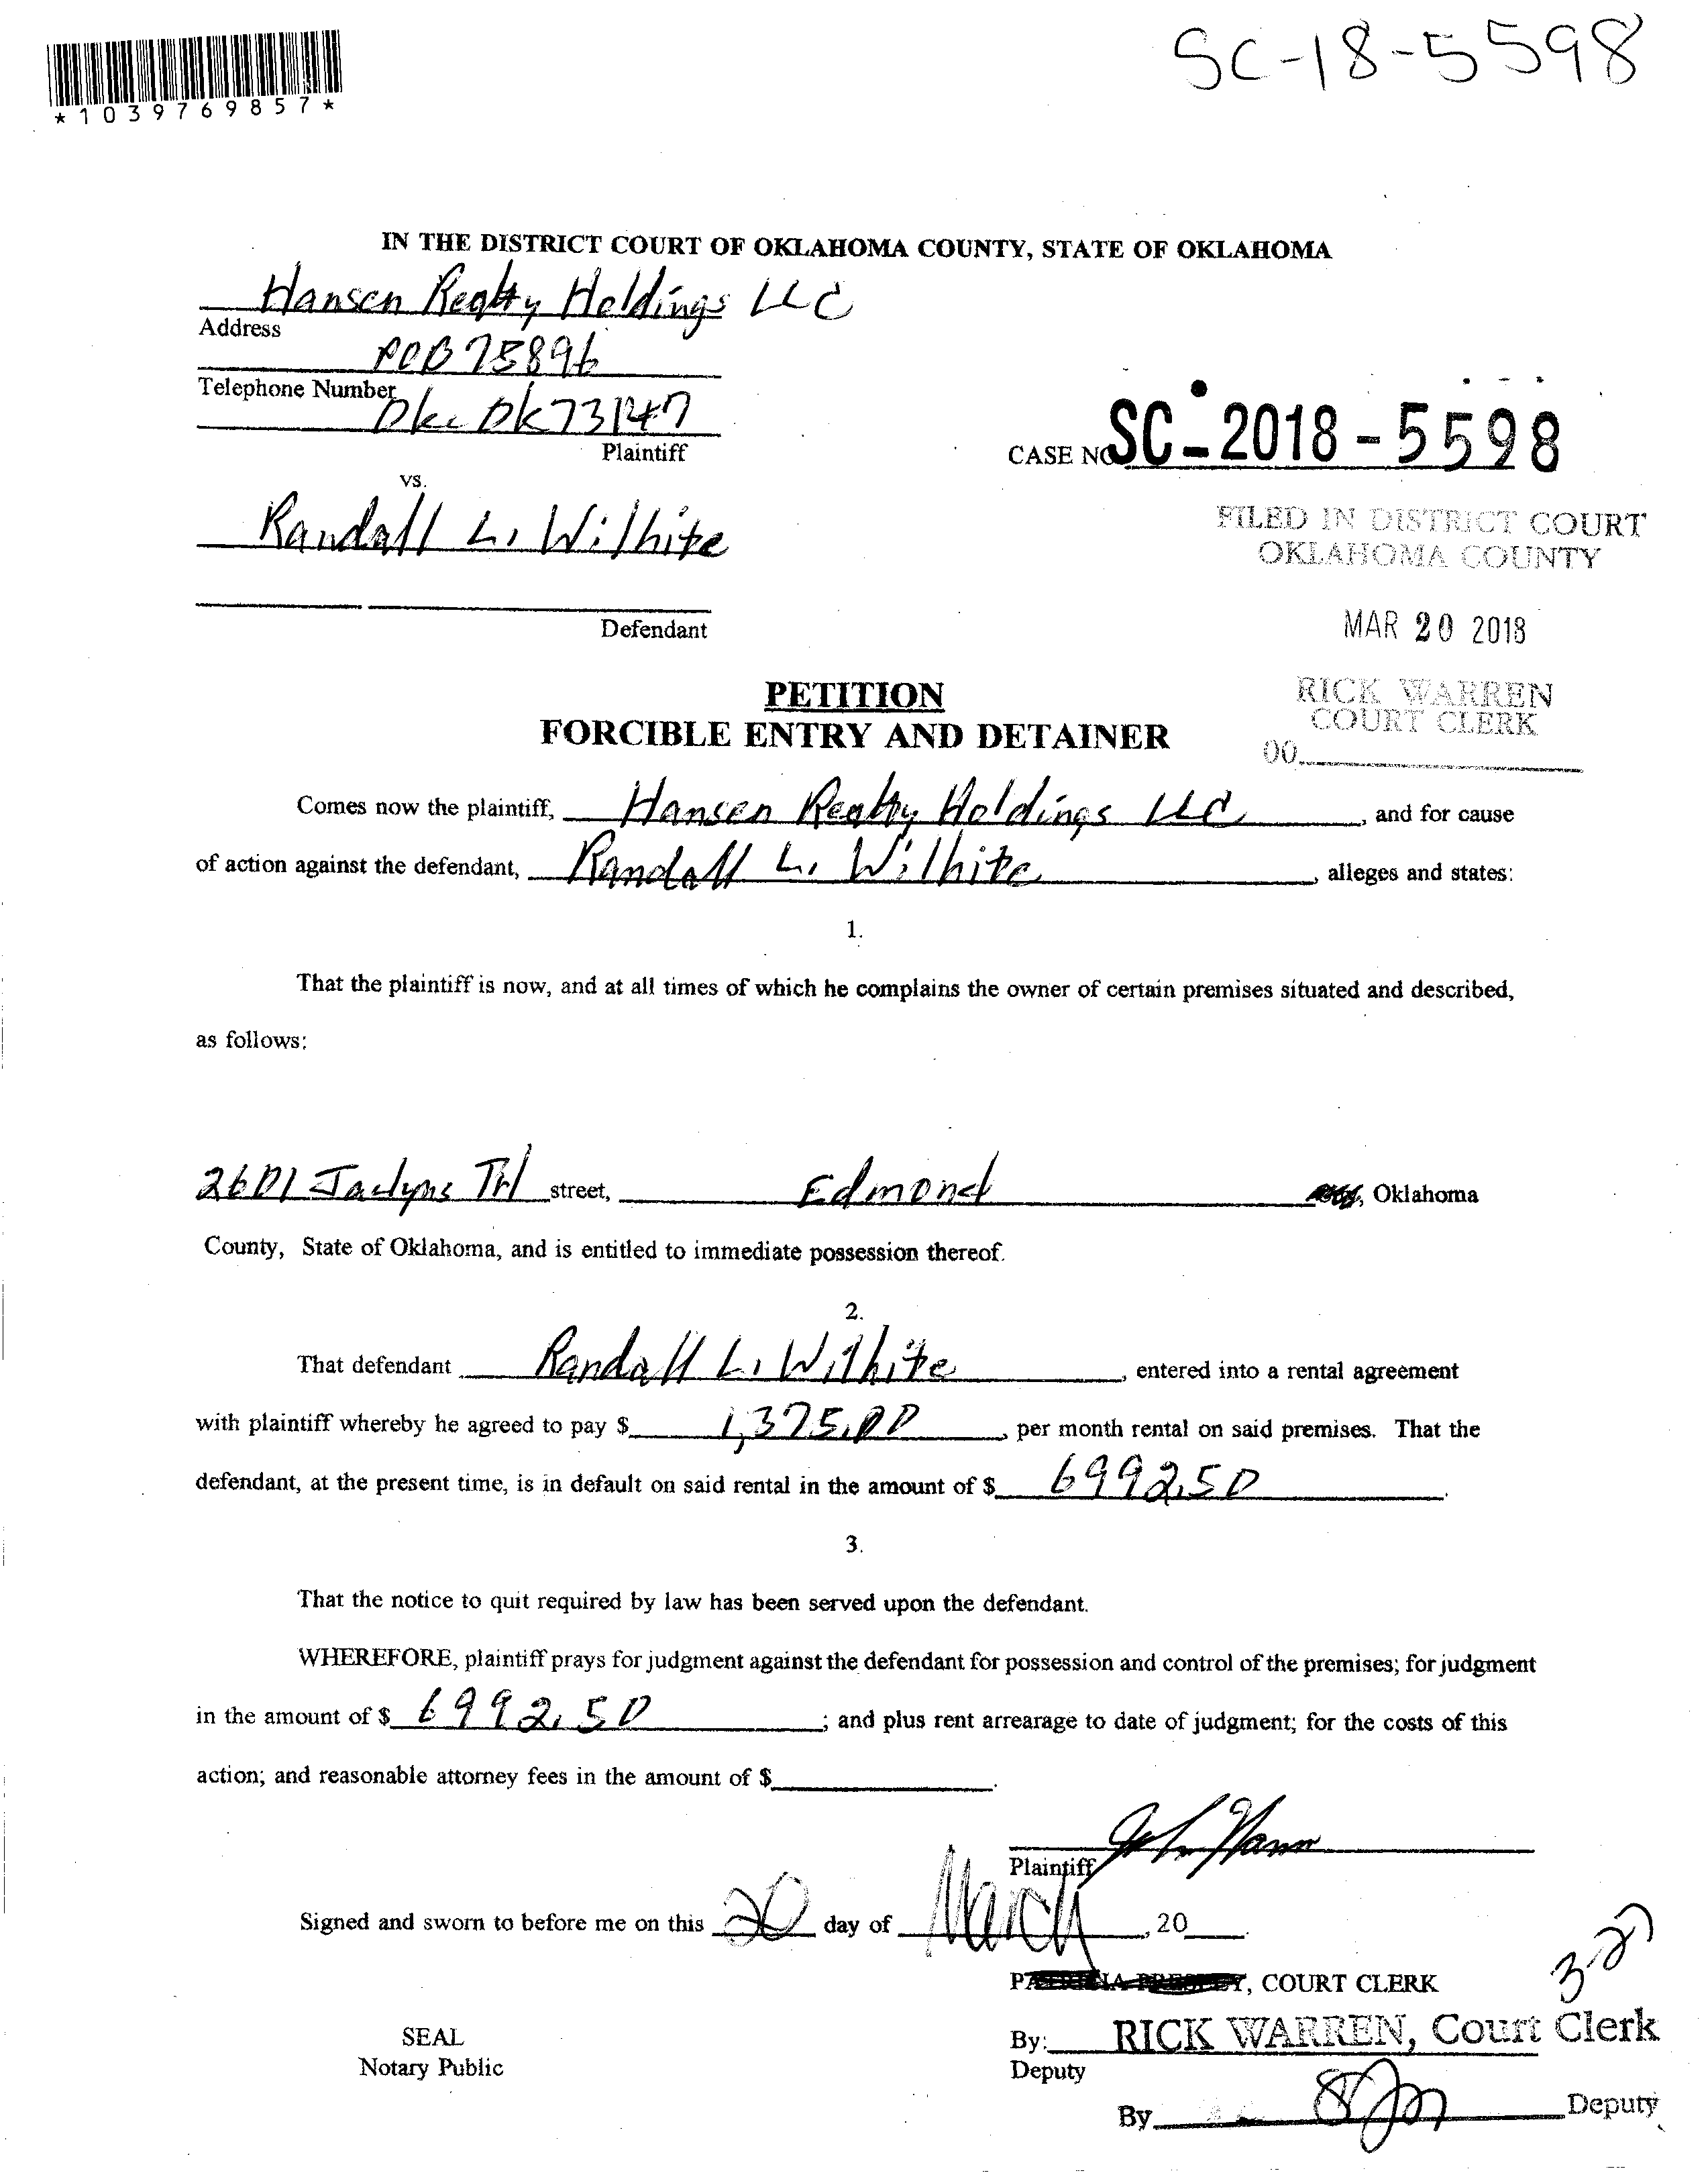 SC-18-5598
*1039769857*
IN THE DISTRICT COURT OF OKLAHOMA COUNTY, STATE OF OKLAHOMA
Hansen Realty Holdings LLC
Address
POB 75896
Telephone Number
Okc Ok 73147
Plaintiff
CASE NO SC-2018-5598
vs.
Randall L. Wilhite
FILED IN DISTRICT COURT
OKLAHOMA COUNTY
Defendant
MAR 20 2018
PETITION
RICK WARREN
COURT CLERK
FORCIBLE ENTRY AND DETAINER
00
Comes now the plaintiff, Hansen Realty Holdings LLC, and for cause
of action against the defendant, Randall L. Wilhite, alleges and states:
1.
That the plaintiff is now, and at all times of which he complains the owner of certain premises situated and described,
as follows:
2601 Jaclyns Trl street, Edmond, Oklahoma
County, State of Oklahoma, and is entitled to immediate possession thereof.
2.
That defendant Randall L. Wilhite, entered into a rental agreement
with plaintiff whereby he agreed to pay $ 1,375.00, per month rental on said premises. That the
defendant, at the present time, is in default on said rental in the amount of $ 6992.50.
3.
That the notice to quit required by law has been served upon the defendant.
WHEREFORE, plaintiff prays for judgment against the defendant for possession and control of the premises; for judgment
in the amount of $ 6992.50; and plus rent arrearage to date of judgment; for the costs of this
action; and reasonable attorney fees in the amount of $.
Plaintiff
Signed and sworn to before me on this 20 day of March, 20
3-27
, COURT CLERK
SEAL
By: RICK WARREN, Court Clerk
Notary Public
Deputy
By Deputy